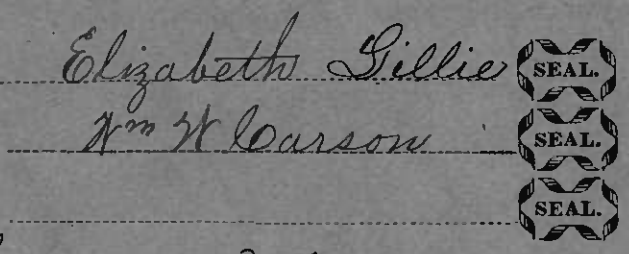 Elizabeth Gillie SEAL.
Wm W Carson SEAL.
SEAL.